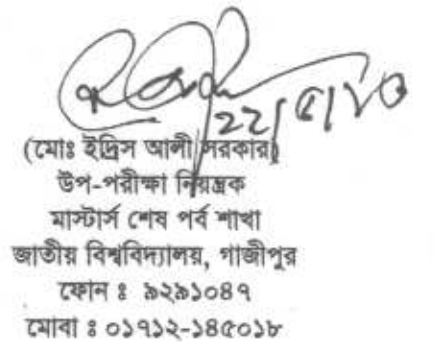 ২২/৫/১৩
(মোঃ ইদ্রিস আলী সরকার)
উপ-পরীক্ষা নিয়ন্ত্রক
মাস্টার্স শেষ পর্ব শাখা
জাতীয় বিশ্ববিদ্যালয়, গাজীপুর
ফোন ঃ ৯২৯১০৪৭
মোবা ঃ ০১৭১২-১৪৫০১৮